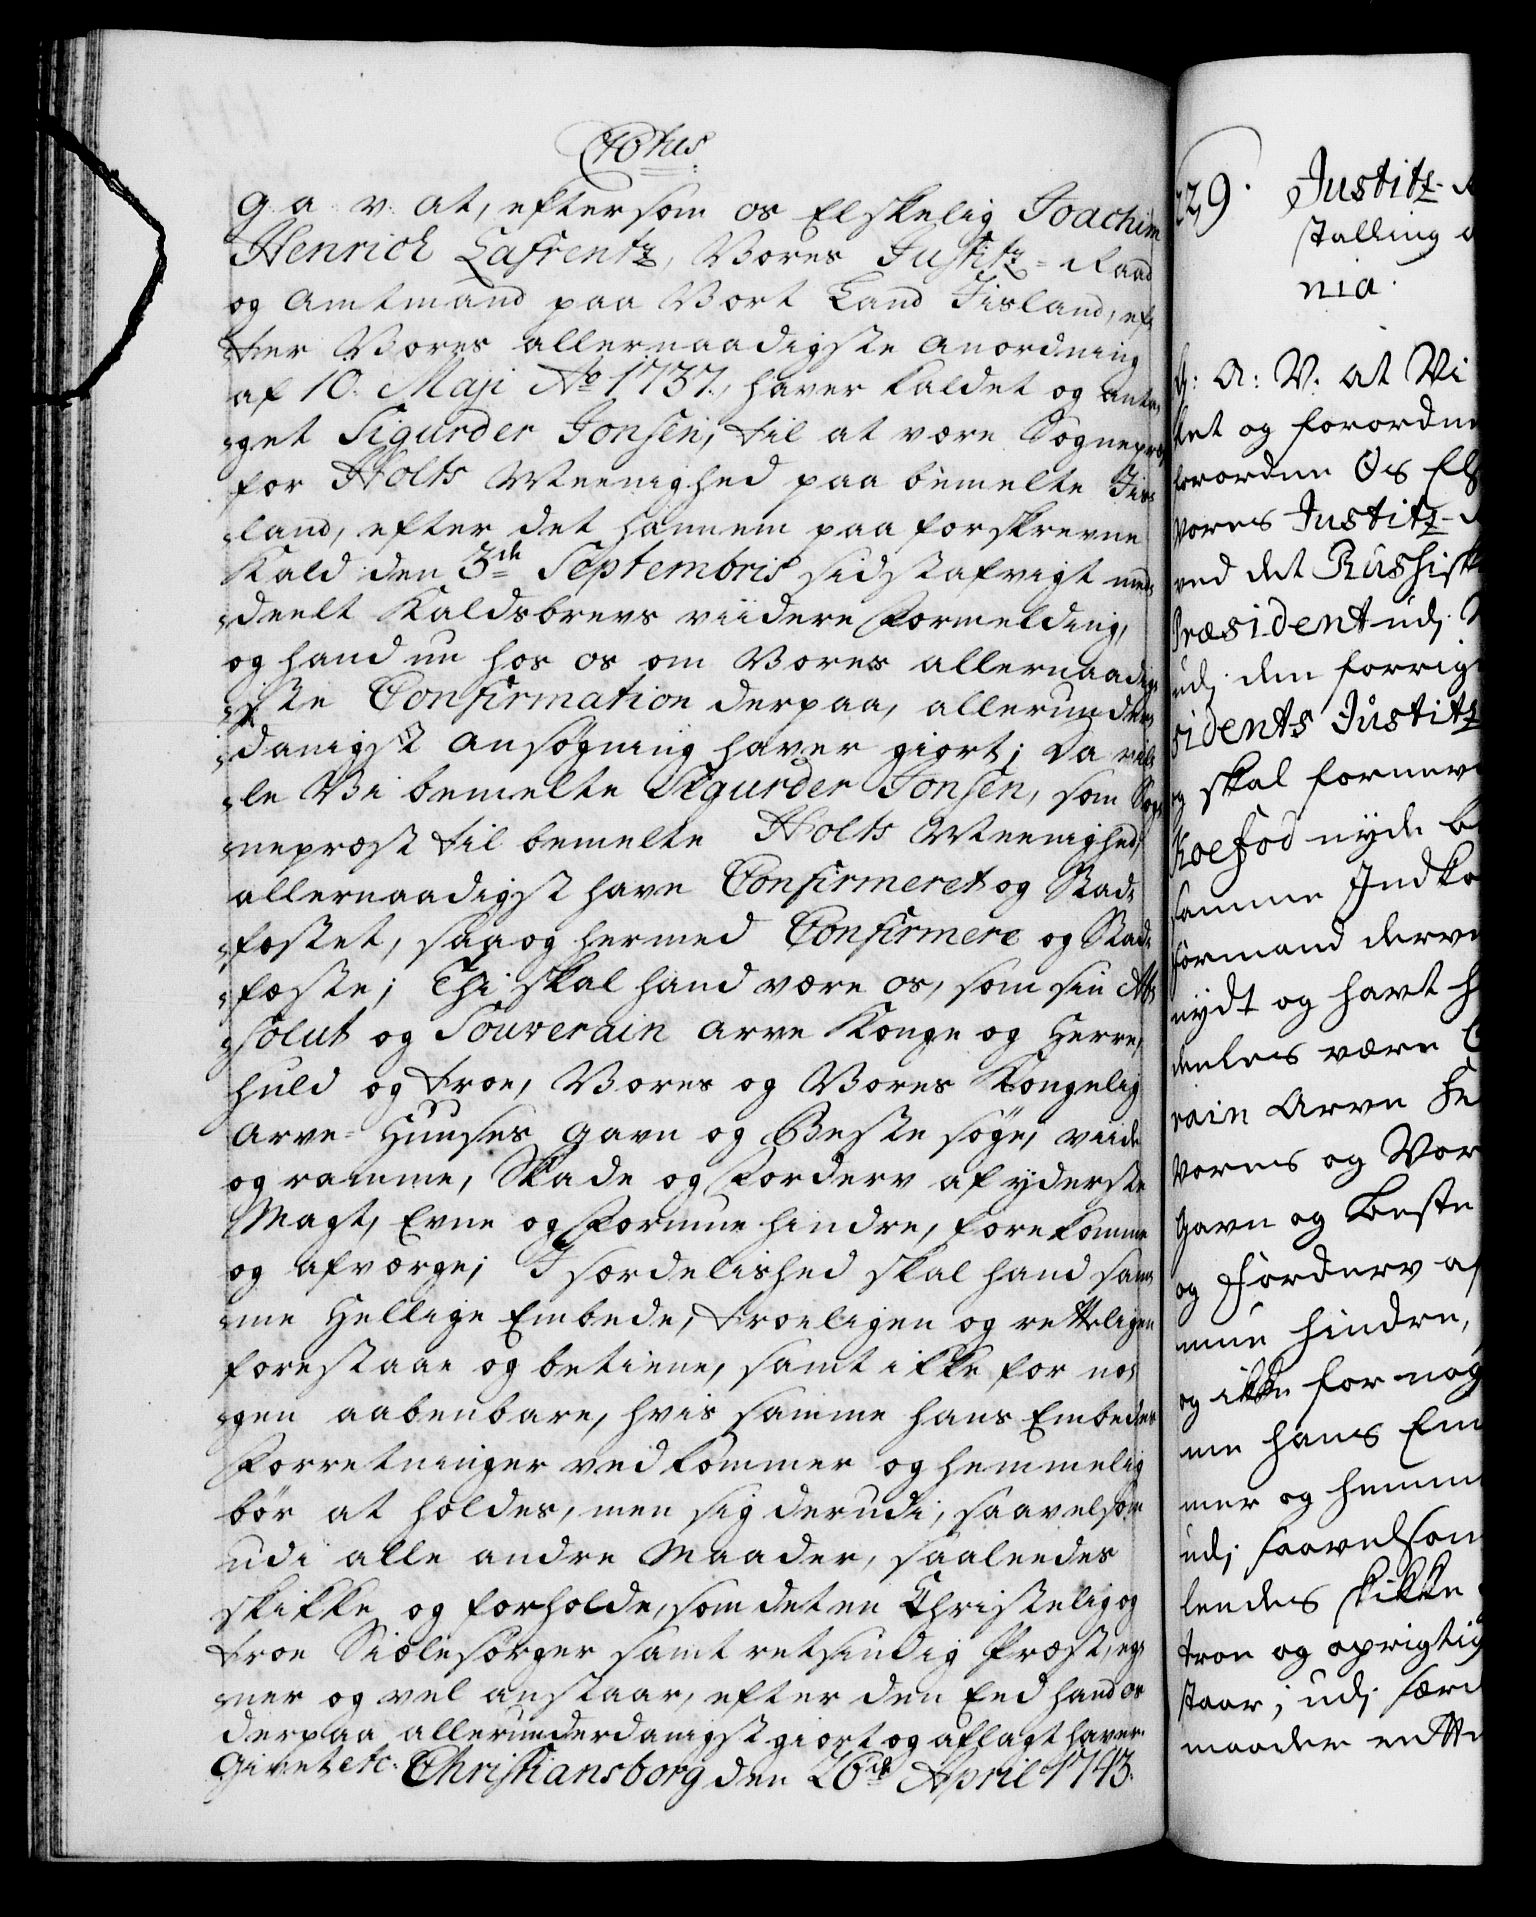 Crokes
g a v at, eftersom os Elskelig Joachim
Henrich Lafrentz, Vores Justitz-Raad
og Amtmand paa Vort Land Iisland, ef¬
ter Vores allernaadigste anordning
af 10. Maji Ao 1737., haver kaldet og anta¬
get Sigurder Jonsen, til at være Sognepræst
for Holts Meenighed paa bemelte Iis¬
land, efter det hannem paa forskrevne
Kald den 3de Septembris sidstafvigt med¬
deelt Kaldsbrevs viidere Formelding,
og hand nu hos os om Vores allernaadig¬
ste Confirmation derpaa, allerunder¬
danigst ansøgning haver giort; Da vil¬
le Vi bemelte Sigurder Jonsen, som Sog¬
nepræst til bemelte Holts Meenighed,
allernaadigst have Confirmeret og Stad¬
fæstet, saa og hermed Confirmere og Stad¬
fæste; Thi skal hand være os, som sin Ab¬
solut og Souverain Arve Konge og Herre,
huld og troe, Vores og Vores Kongelig
Arve-Huuses gavn og Beste søge, viide
og ramme, Skade og Forderv af yderste
Magt, Evne og Formue hindre, forekomme
og afværge; I særdelished skal hand sam¬
me Hellige Embede, troeligen og retteligen
forestaae og betiene, samt ikke for no¬
gen aabenbare, hvis samme hans Embedes
Forretninger vedkommer og hemmelig
bør at holdes, men sig derudi, saavelsom
udi alle andre Maader, saaleedes
skikke og forholde, som det en Christelig og
troe Siælesørger samt retsindig Præst, eg¬
ner og vel anstaar, efter den Eed hand os
derpaa allerunderdanigst giort og aflagt haver.
Givet etc. Christiansborg den 26de April 1743.
229. Justitz-
stalling
nia.
G: A: V. at Vi
tet og forordne
forordne Os El
Vores Justitz-
ved det Russisk
Præsident udj
udj den forrig
sidents Justitz
og skal fornev
Koefod nyde
samme Indko
formand derve
nydt og havt
deeles være
rain Arve
Vores og Vor
Gavn og Beste
og Forderv af
mue hindre,
og ikke for nog
me hans Em
mer og hemm
udj saavelsom
leedes skikke
troe og oprigtig
staar; udj sær
maader rette